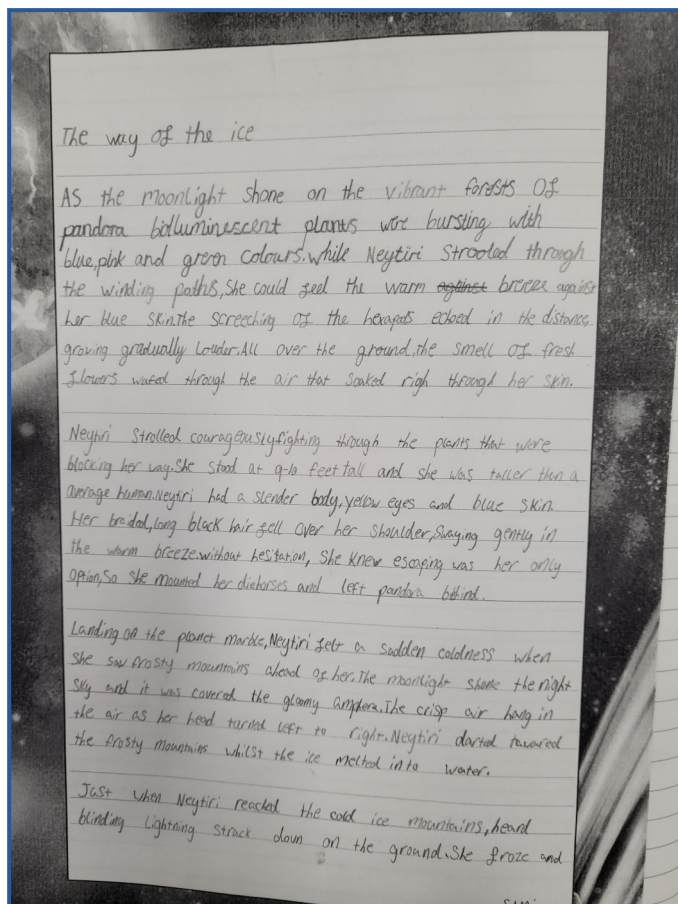 The way of the ice
As the moonlight shone on the vibrant forests of
pandora bioluminescent plants were bursting with
blue,pink and green colours.while Neytiri Strooled through
the winding paths,She could feel the warm against breeze against
her blue skin.The screeching of the hexapads echoed in the distance,
growing gradually louder.All over the ground,the smell of fresh
flowers wafed through the air that soaked righ through her skin.
Neytiri Strolled courageously fighting through the plants that were
blocking her way.She stood at 9-10 feet tall and she was taller than a
average human.Neytiri had a slender body,yellow eyes and blue skin.
Her braided,long black hair fell over her shoulder,Swaying gently in
the warm breeze.without hesitation, She knew escaping was her only
option,So she mounted her diehorses and left pandora behind.
Landing on the planet marble,Neytiri felt a sudden coldness when
She saw frosty mountains ahead of her.The moonlight shone the night
Sky and it was covered the gloomy amphera.The crisp air hang in
the air as her head turned left to right.Neytiri darted towared
the frosty mountains whilst the ice melted into water.
Just when Neytiri reached the cold ice mountains,heard
blinding Lightning struck down on the ground.She froze and